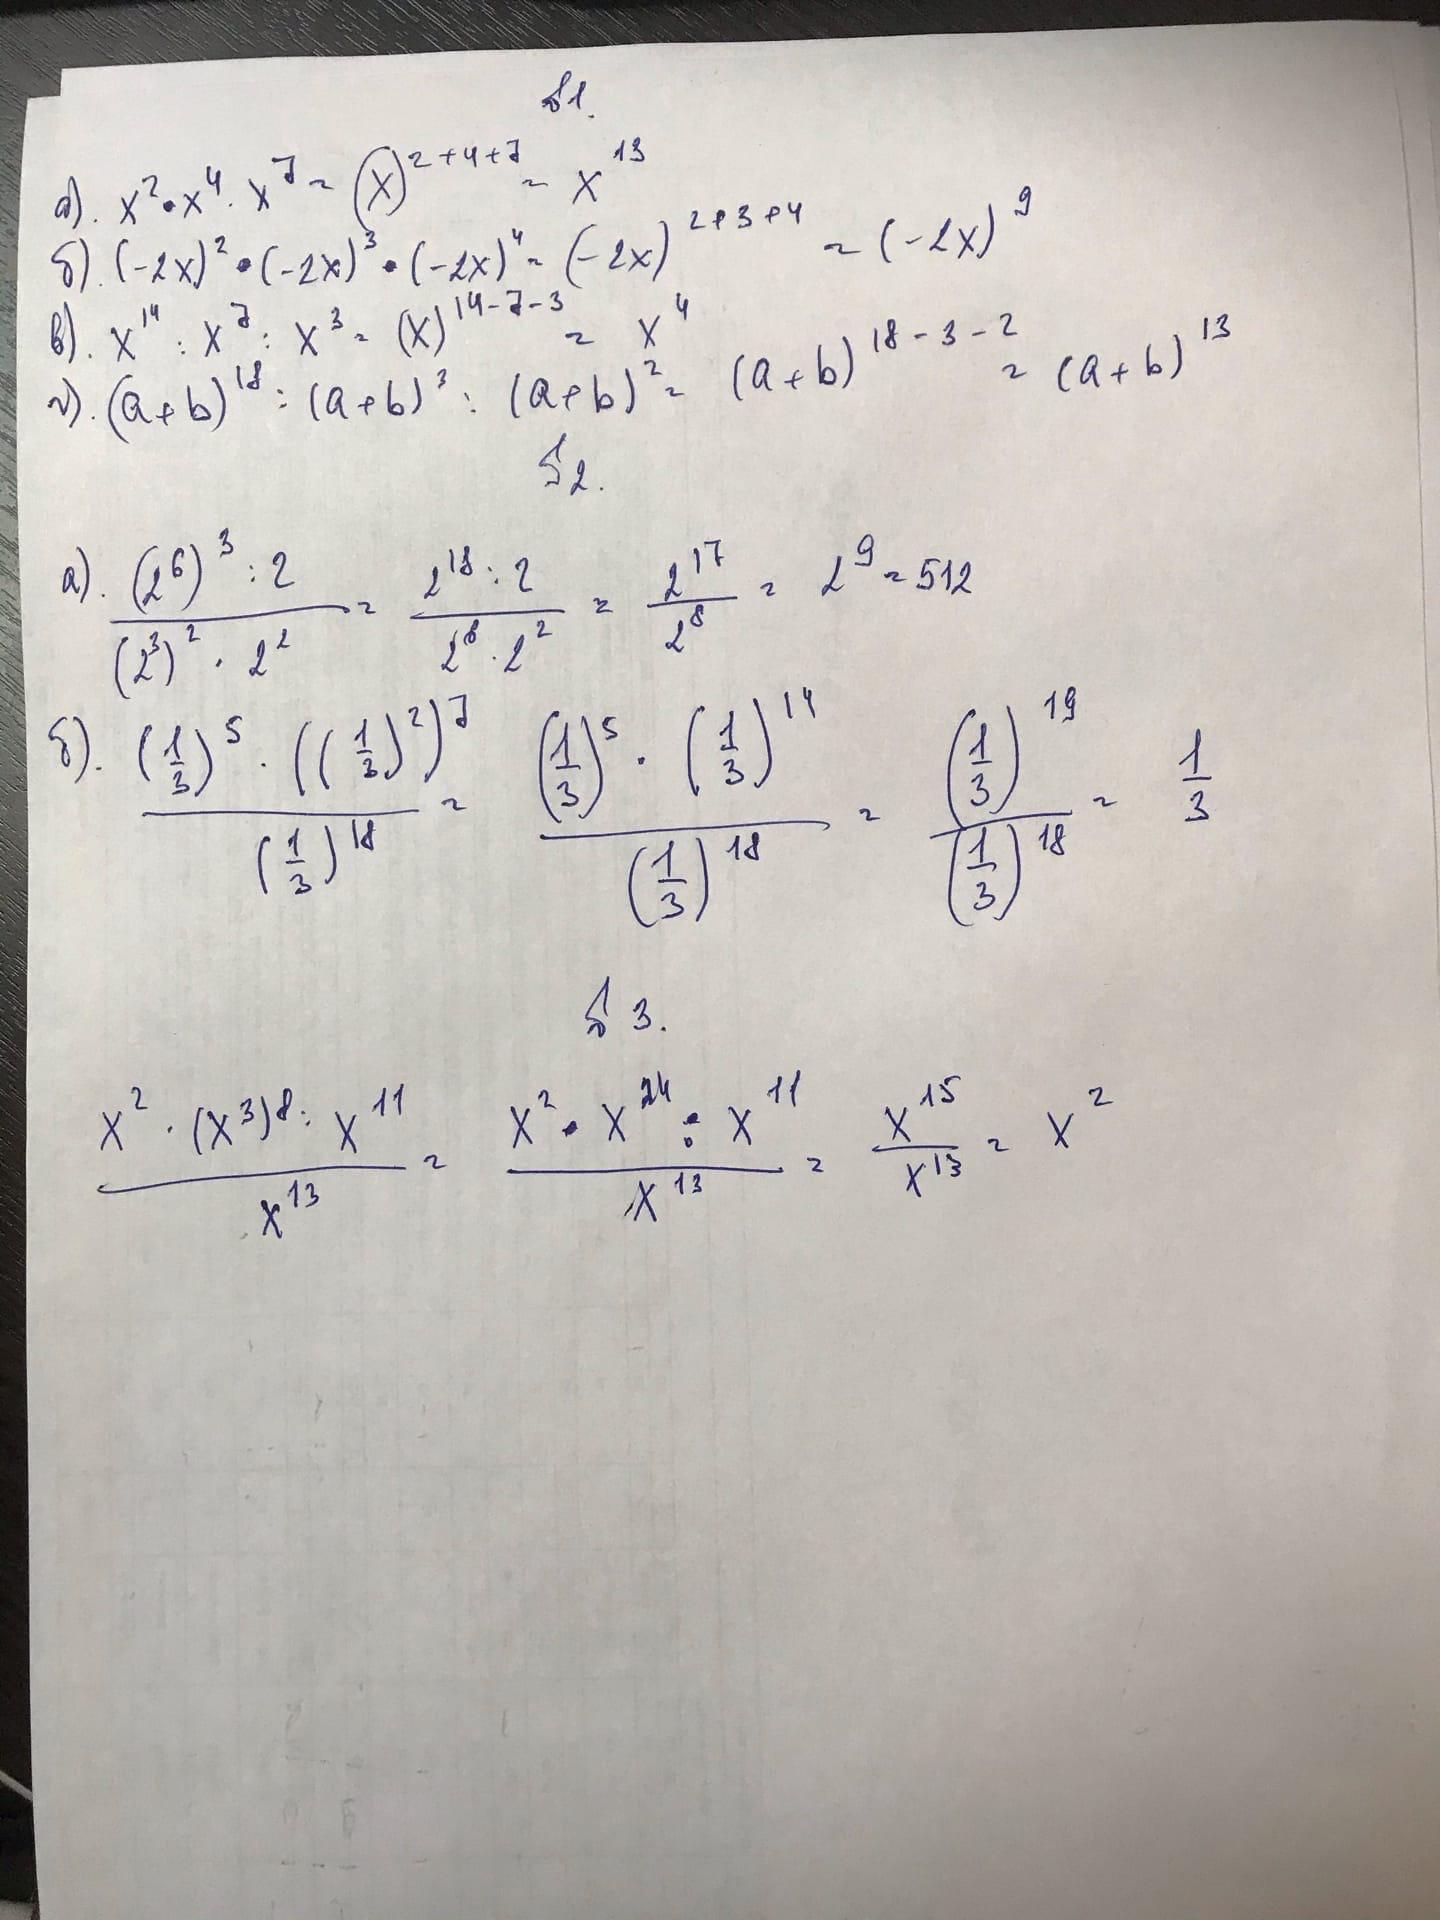 №1.
а). x² • x⁴ · x⁷ = (x)²⁺⁴⁺⁷ = x¹³
б). (-2x)² • (-2x)³ • (-2x)⁴ = (-2x)²⁺³⁺⁴ = (-2x)⁹
в). x¹⁴ : x⁷ : x³ = (x)¹⁴⁻⁷⁻³ = x⁴
г). (a+b)¹⁸ : (a+b)³ : (a+b)² = (a+b)¹⁸⁻³⁻² = (a+b)¹³
№2.
а). ((2⁶)³ : 2)/((2³)² · 2²) = (2¹⁸ : 2)/(2⁶ · 2²) = 2¹⁷/2⁸ = 2⁹ = 512
б). ((1/3)⁵ · ((1/3)²)⁷)/(1/3)¹⁸ = ((1/3)⁵ · (1/3)¹⁴)/(1/3)¹⁸ = (1/3)¹⁹/(1/3)¹⁸ = 1/3
№3.
(x² · (x³)⁸ : x¹¹)/x¹³ = (x² • x²⁴ : x¹¹)/x¹³ = x¹⁵/x¹³ = x²